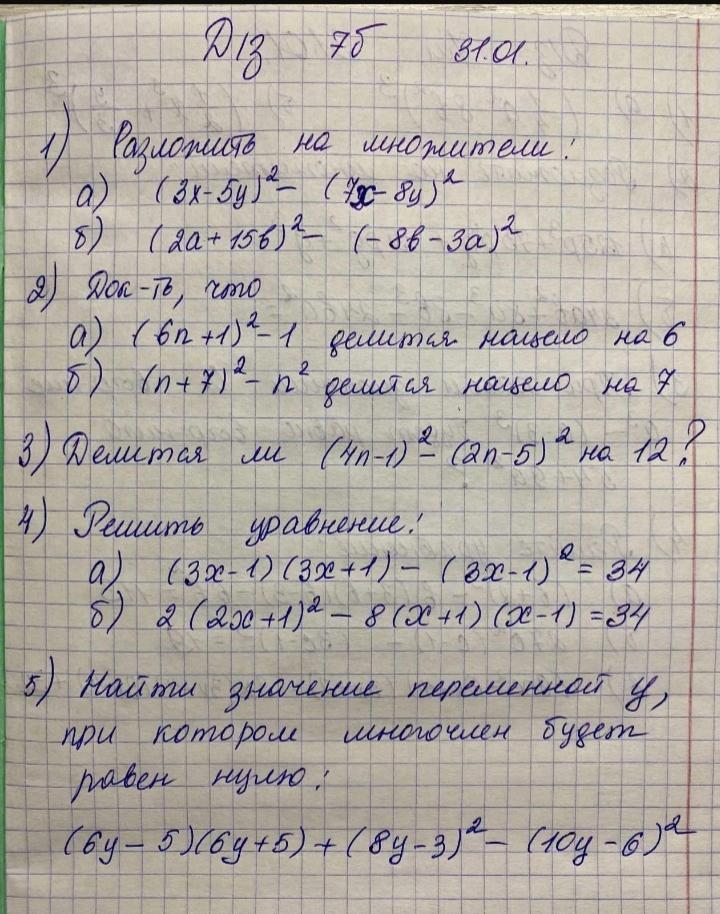 Д/з 7б 31.01.
1) Разложить на множители:
а) (3x-5y)² - (7x-8y)²
б) (2a+15в)² - (-8в-3a)²
2) Док-ть, что
а) (6n+1)²-1 делится нацело на 6
б) (n+7)² - n² делится нацело на 7
3) Делится ли (4n-1)² - (2n-5)² на 12?
4) Решить уравнение:
а) (3x-1)(3x+1) - (3x-1)² = 34
б) 2(2x+1)² - 8(x+1)(x-1) = 34
5) Найти значение переменной y,
при котором многочлен будет
равен нулю:
(6y-5)(6y+5) + (8y-3)² - (10y-6)²